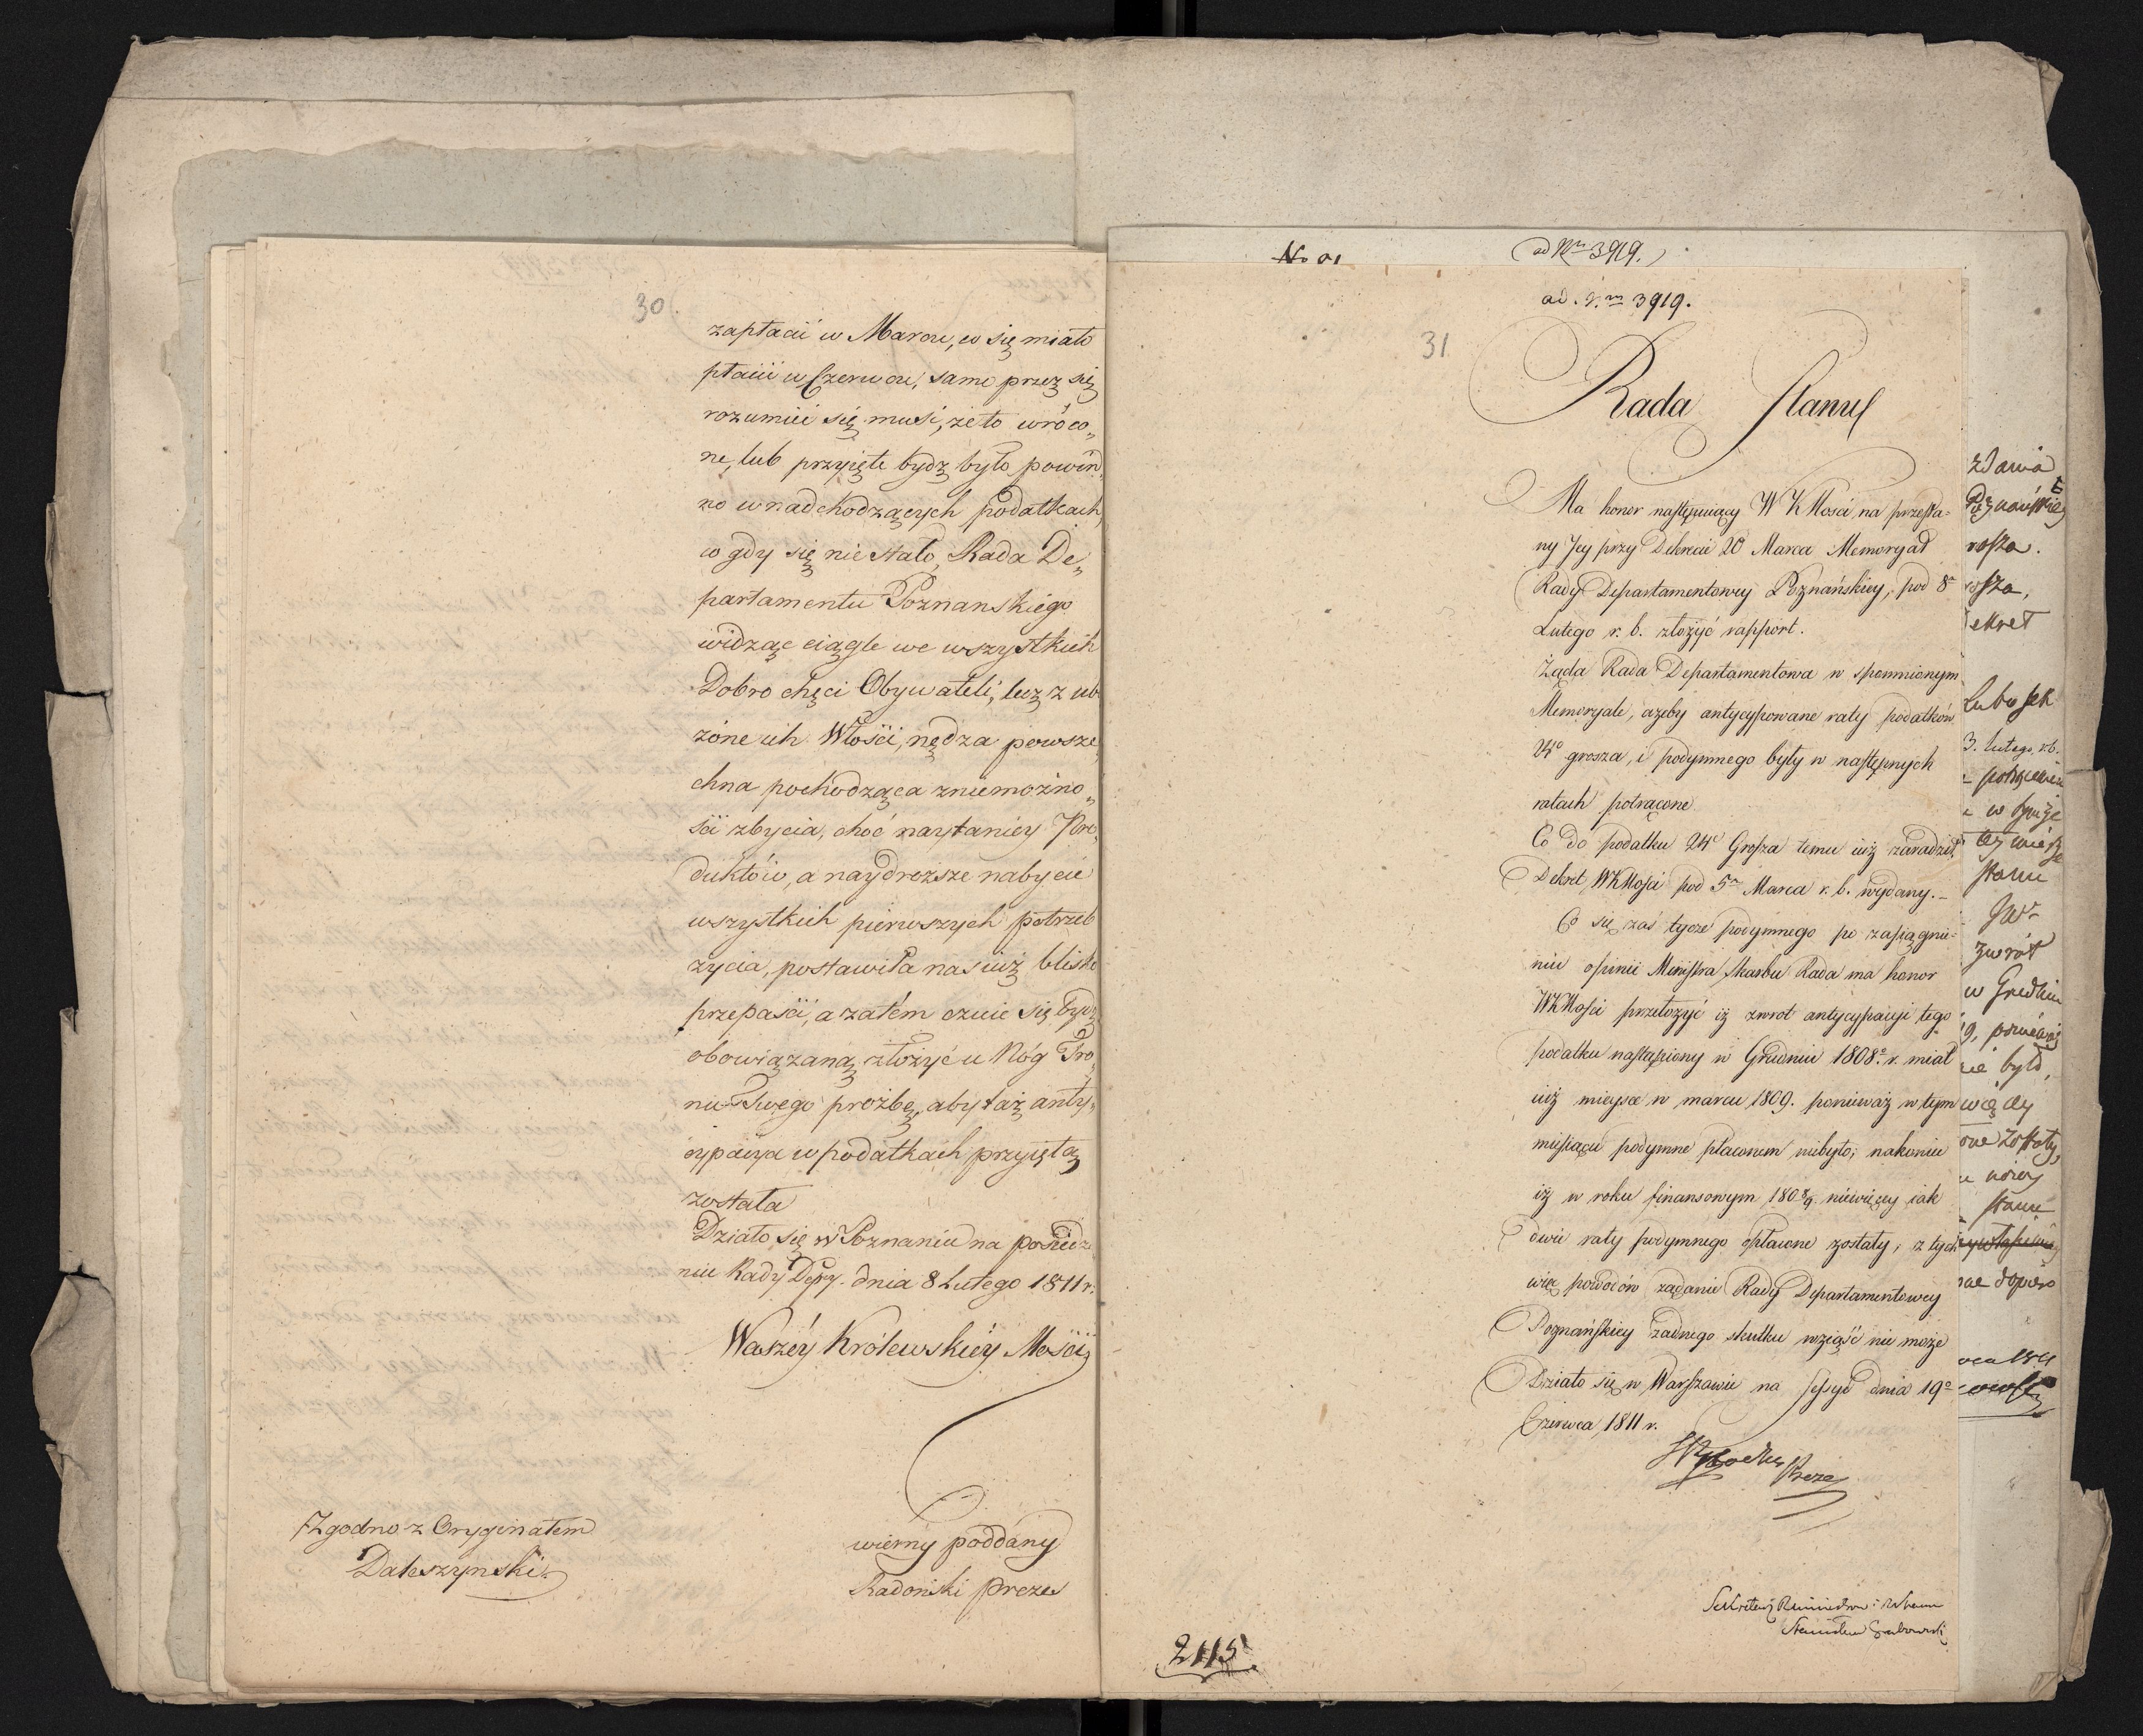 30
zapłacić w Marcu, co się miało
płacić w Czerwcu, samo przez się
rozumieć się musi, że to wróco„
ne, lub przyięte bydź było powin„
no w nadchodzących podatkach,
co gdy się nie stało, Rada De„
partamentu Poznanskiego
widząc ciągle we wszystkich
Dobro chęci Obywateli, lecz z ubo
żone ich Włości, nędza powsze„
chna pochodząca z niemożno„
ści zbycia, choć naytaniey Pro„
duktów, a naydroższe nabycie
wszystkich pierwszych potrzeb
życia, postawiła nas iuż blisko
przepaści, a zatem czuie się bydź
obowiązaną złożyć u Nóg Tro„
nu Twego proźbę, aby taż anty„
cypacya w podatkach przyiętą
została
Działo się w Poznaniu na posiedze
niu Rady Dep. dnia 8 Lutego 1811 r.
Waszéy Królewskiéy Mości
wierny poddany
Radoński Prezes
Zgodno z Oryginałem
Daleszynski
No
ad Nrm 3919.
ad. Nrm 3919.
31
Rada Stanu
Ma honor następuiący W K Mości na przesła=
ny Jey przy Dekrecie 20 Marca Memoryał
Rady Departamentowey Poznańskiey, pod 8
Lutego r. b. złożyć rapport.
Żąda Rada Departamentowa w spomnionym
Memoryale, ażeby antycypowane raty podatków
24o grosza, i podymnego były w następnych
ratach potrącone
Co do podatku 24o Grosza temu iuż zaradził
Dekret WKMości pod 5m Marca r. b. wydany. –
Co się zaś tycze podymnego po zasiągnie=
niu opinii Ministra Skarbu Rada ma honor
WKMości przełożyć iż zwrot antycypacyi tego
podatku nastąpiony w Grudniu 1808o r. miał
iuż mieysce w marcu 1809. ponieważ w tym
miesiącu podymne płaconem niebyło; nakoniec
iż w roku finansowym 1808/9. niewięcey iak
dwie raty podymnego opłacone zostały; z tych
więc powodów żądanie Rady Departamentowey
Poznańskiey żadnego skutku wziąść nie może
Działo się w Warszawie na Sessyi dnia 19o
Czerwca 1811 r.
Prezes
Stanisław Grabowski
2115
zdania
Poznańskiey
rosza.
rosza,
ekret
3. Lutego, r. b.
Stanu
zwrot
w Grudniu
9, ponieważ
ie było,
Stanu
ne dopiero